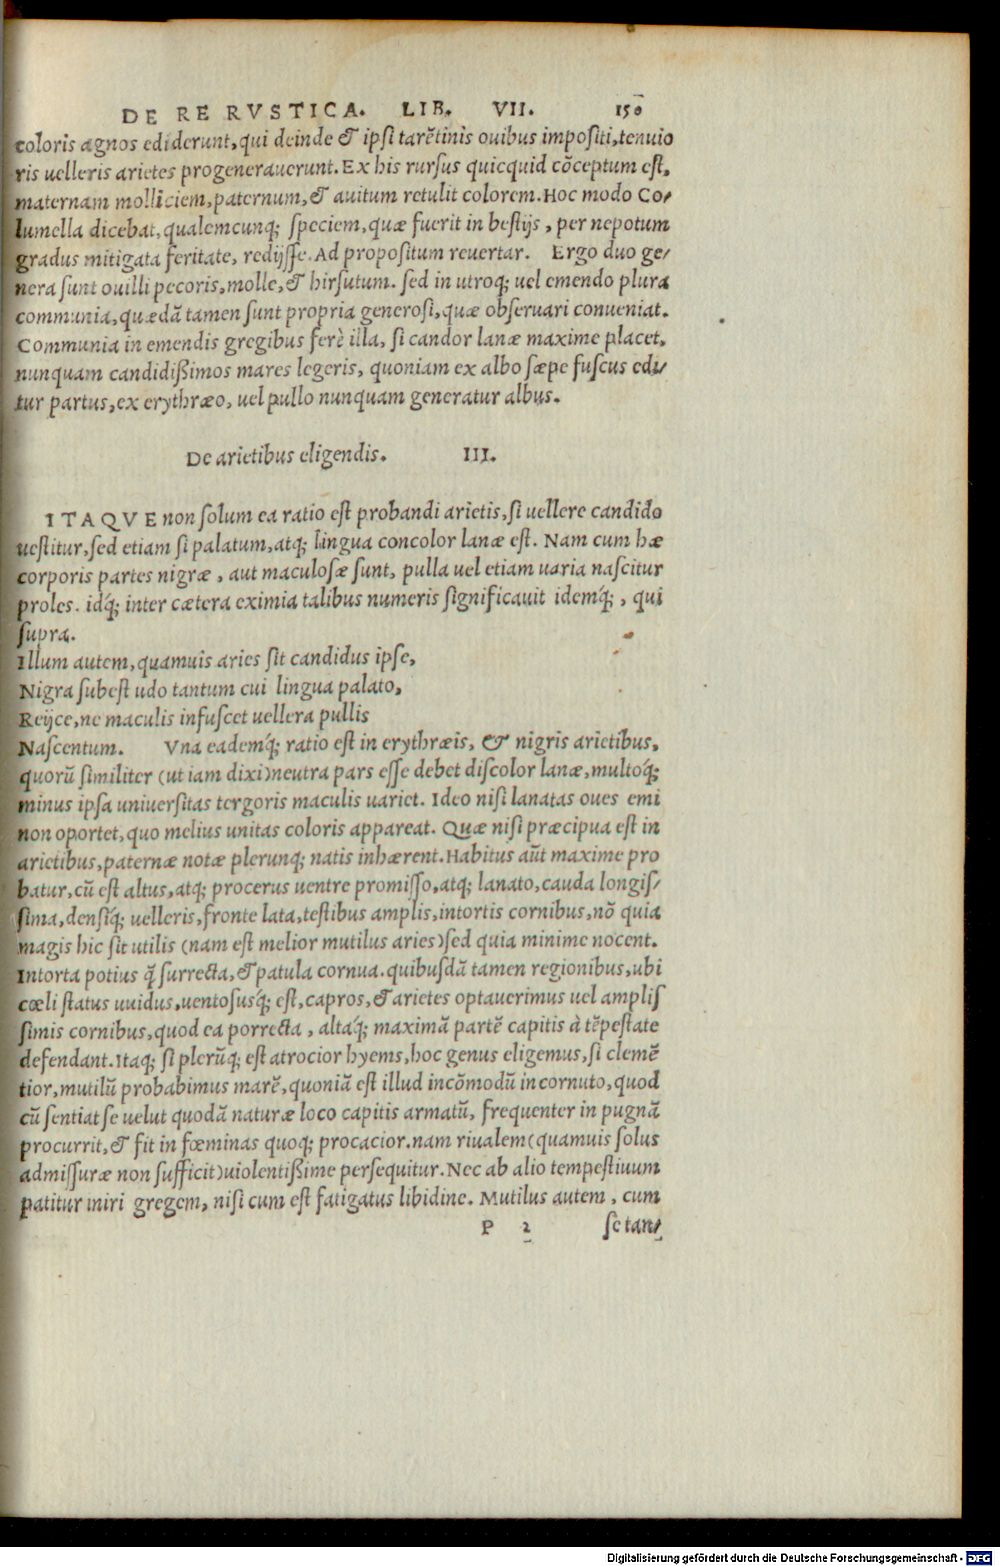 DE RE RVSTICA. LIB. VII. 150
coloris agnos ediderunt, qui deinde & ipsi tarẽtinis ouibus impositi, tenuio
ris uelleris arietes progenerauerunt. Ex his rursus quicquid cõceptum est,
maternam molliciem, paternum, & auitum retulit colorem. Hoc modo Co/
lumella dicebat, qualemcunq; speciem, quæ fuerit in bestijs, per nepotum
gradus mitigata feritate, redijsse. Ad propositum reuertar. Ergo duo ge/
nera sunt ouilli pecoris, molle, & hirsutum. sed in utroq; uel emendo plura
communia, quædã tamen sunt propria generosi, quæ obseruari conueniat.
Communia in emendis gregibus ferè illa, si candor lanæ maxime placet,
nunquam candidißimos mares legeris, quoniam ex albo sæpe fuscus edi/
tur partus, ex erythræo, uel pullo nunquam generatur albus.
De arietibus eligendis. III.
ITAQVE non solum ea ratio est probandi arietis, si uellere candido
uestitur, sed etiam si palatum, atq; lingua concolor lanæ est. Nam cum hæ
corporis partes nigræ, aut maculosæ sunt, pulla uel etiam uaria nascitur
proles. idq́; inter cætera eximia talibus numeris significauit idemq́;, qui
supra.
Illum autem, quamuis aries sit candidus ipse,
Nigra subest udo tantum cui lingua palato,
Reijce, ne maculis infuscet uellera pullis
Nascentum. Vna eademq́; ratio est in erythræis, & nigris arietibus,
quorũ similiter (ut iam dixi) neutra pars esse debet discolor lanæ, multoq́;
minus ipsa uniuersitas tergoris maculis uariet. Ideo nisi lanatas oues emi
non oportet, quo melius unitas coloris appareat. Quæ nisi præcipua est in
arietibus, paternæ notæ plerunq; natis inhærent. Habitus aũt maxime pro
batur, cũ est altus, atq; procerus uentre promisso, atq; lanato, cauda longis/
sima, densiq́; uelleris, fronte lata, testibus amplis, intortis cornibus, nõ quia
magis hic sit utilis (nam est melior mutilus aries) sed quia minime nocent.
Intorta potius q̃ surrecta, & patula cornua. quibusdã tamen regionibus, ubi
cœli status uuidus, uentosusq́; est, capros, & arietes optauerimus uel amplis
simis cornibus, quod ea porrecta, altaq́; maximã partẽ capitis à tẽpestate
defendant. Itaq; si plerũq; est atrocior hyems, hoc genus eligemus, si clemẽ
tior, mutilũ probabimus marẽ, quoniã est illud incõmodũ in cornuto, quod
cũ sentiat se uelut quodã naturæ loco capitis armatũ, frequenter in pugnã
procurrit, & fit in fœminas quoq; procacior. nam riualem (quamuis solus
admissuræ non sufficit) uiolentißime persequitur. Nec ab alio tempestiuum
patitur iniri gregem, nisi cum est fatigatus libidine. Mutilus autem, cum
P 2 se tan/
Digitalisierung gefördert durch die Deutsche Forschungsgemeinschaft - DFG